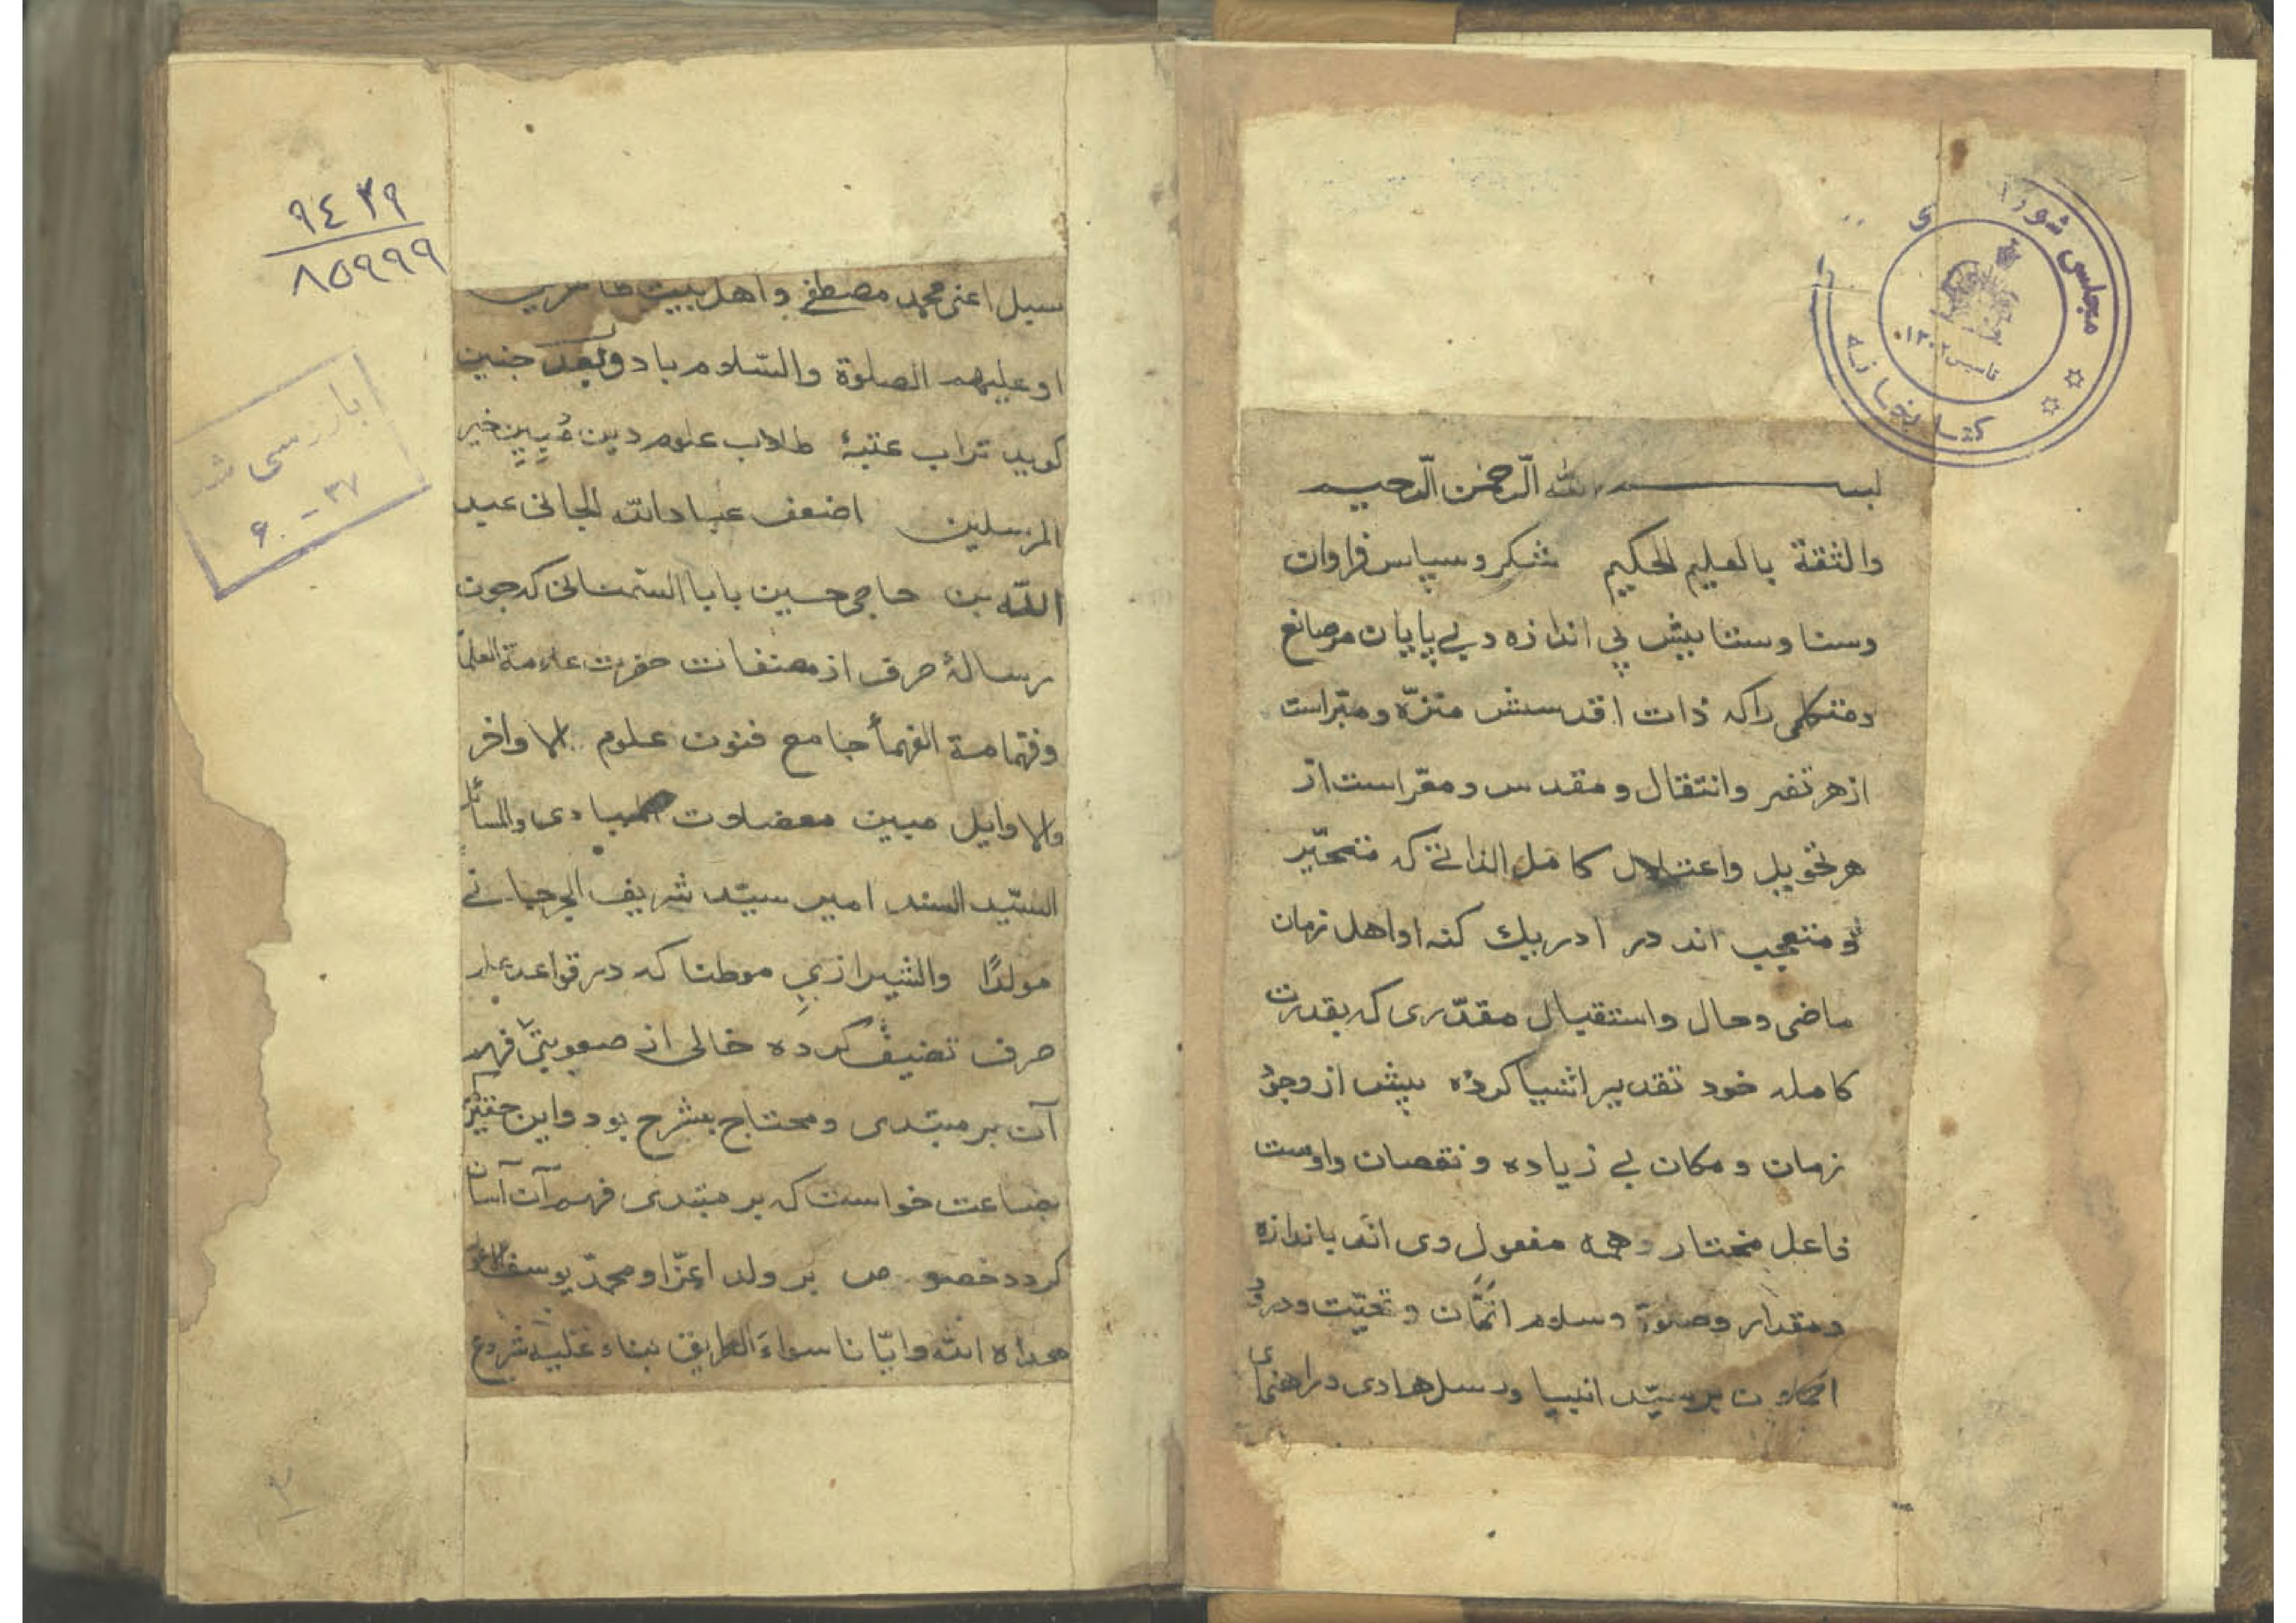 مجلس شورای
کتابخانه
تاسیس ۱۳۰۲
بسم الله الرحمن الرحیم
والثقة بالعلیم الحکیم شکر و سپاس فراوان
وسنا وستایش بی اندازه و بی پایان مر صانع
ومتکلمی را که ذات اقدسش منزّه و مبّراست
از هر تغیر وانتقال و مقدس و معّراست از
هر تحویل واعتلال کامل الذاتی که متحّیر
و متعجب اند در ادریك کنه او اهل زمان
ماضی وحال واستقبال مقدّری که بقدرت
کامله خود تقدیر اشیا کرده پیش از وجود
زمان و مکان بی زیاده و نقصان واوست
فاعل مختار و همه مفعول وی اند باندازه
ومقدار وصلوة وسلام اتمّان و تحیّت ودرود
اکملان بر سیّد انبیا ورسل هادی وراهنمای
سبل اعنی محمد مصطفی و اهل بیت طاهرین
او علیهم الصلوة والسّلام باد وبعد چنین
کوید تراب عتبهٔ طلاب علوم دین مُبِینِ خیر
المرسلین اضعف عباد الله الجانی عبد
الله بن حاجی حسین بابا السّمنانی که چون
رسالهٔ صرف از مصنفات حضرت علامة العلمأ
وفهّامة الفهمأ جامع فنون علوم الاواخر
والاوایل مبین معضلات المبادی والمسائل
السّید السند امیر سیّد شریف الجرجانی
مولدًا والشیرازیِ موطنا که در قواعد علم
صرف تصنیف کرده خالی از صعوبتی فهم
آن بر مبتدی و محتاج بشرح بود واین حقیر
بضاعت خواست که بر مبتدی فهم آن آسان
کردد خصوص بر ولد اعزّ او محمّد یوسف
هداه الله وایّانا سواءَ الطریق بناء علیه شروع
۹٤۳۹
۸۵۹۹۹
بازرسی شد
۳۷ - ۶۰
۲